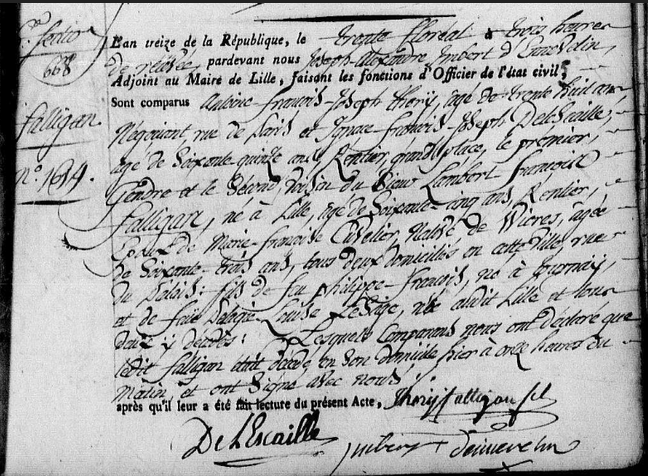 5.e Section
668
falligan
N.o 1614.
L'an treize de la République, le trente floréal à trois heures
de relevée, pardevant nous Joseph-Alexandre Imbert d'Ennevelin,
Adjoint au Maire de Lille, faisant les fonctions d'Officier de l'état civil,
Sont comparus Antoine-françois-Joseph Thery, âgé de trente huit ans,
Négociant rue de Paris et Ignace-françois-Joseph DelesCaille,
âgé de Soixante quinze ans, Rentier, grande place, le premier,
Gendre et le Second, Voisin du Sieur Lambert françois
falligan, né à Lille, âgé de Soixante Cinq ans, Rentier,
Epoux de Marie-françoise Cuvelier, Native de Wicres, âgée
de Soixante-trois ans, tous deux domiciliés en cette Ville, rue
du Palais; fils de feu philippe-françois, né à Gournay,
et de feue Louise LeSage, née audit Lille et tous
deux y décédés: Lesquels Comparans nous ont déclaré que
ledit falligan était décédé en Son domicile hier à onze heures du
Matin et ont Signé avec nous,
après qu'il leur a été fait lecture du présent Acte, Thery falligan fil
DelEscaille
imbert d'ennevelin